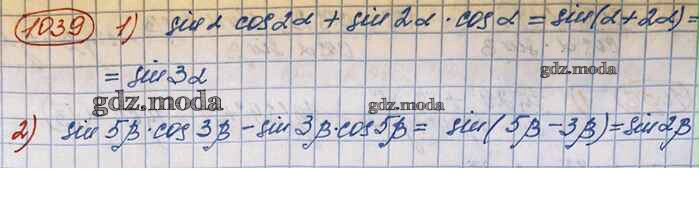 1039 1) sin α cos 2α + sin 2α · cos α = sin(α + 2α) =
= sin 3α
gdz.moda
gdz.moda
gdz.moda
2) sin 5β · cos 3β − sin 3β · cos 5β = sin(5β − 3β) = sin 2β